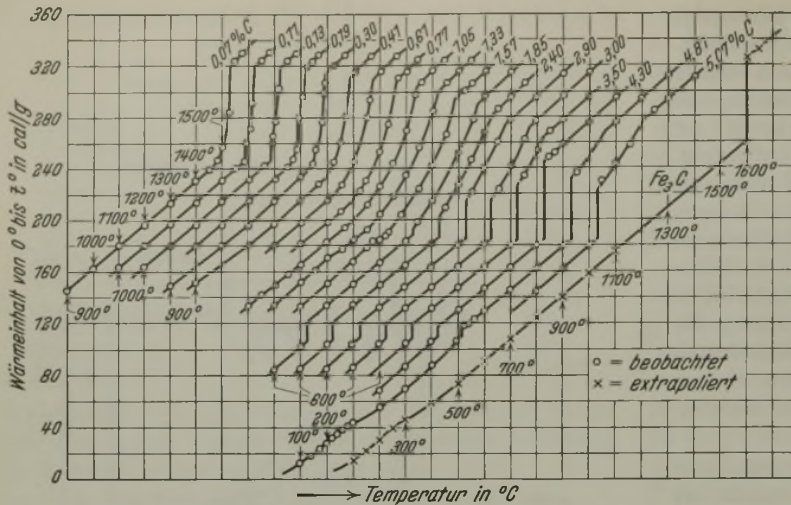 360
320
280
240
200
160
120
80
40
0
Wärmeinhalt von 0° bis t° in cal/g
0,07%C
0,11
0,13
0,19
0,30
0,41
0,61
0,77
1,05
1,33
1,57
1,85
2,40
2,90
3,00
3,50
4,30
4,81
5,07%C
1500°
1400°
1300°
1200°
1100°
1000°
900°
1000°
900°
600°
200°
100°
300°
500°
700°
900°
1100°
1300°
1500°
1600°
Fe₃C
o = beobachtet
× = extrapoliert
⟶ Temperatur in °C